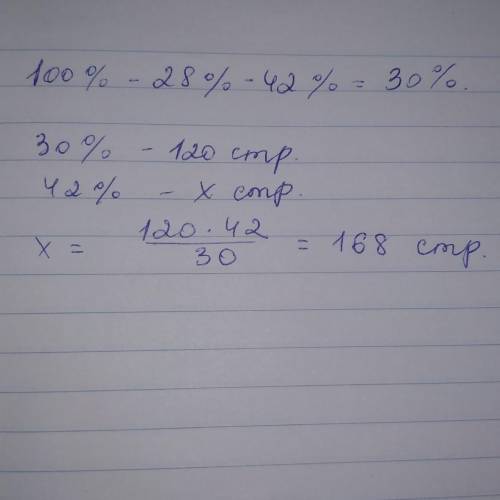 100% - 28% - 42% = 30%.
30% - 120 стр.
42% - x стр.
x = 120 · 42 / 30 = 168 стр.